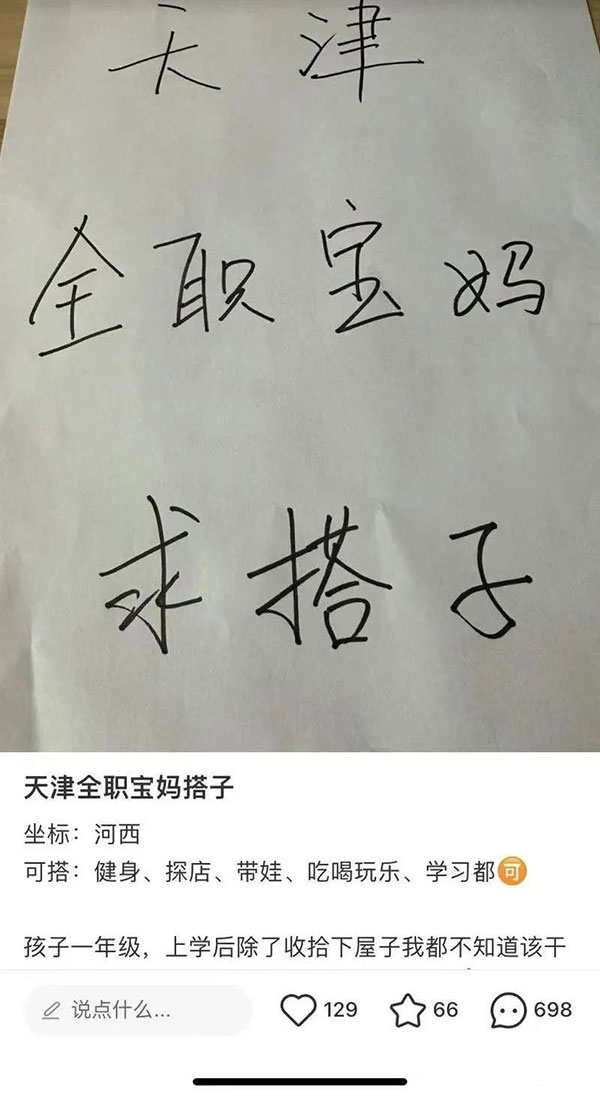 天津
全职宝妈
求搭子
天津全职宝妈搭子
坐标：河西
可搭：健身、探店、带娃、吃喝玩乐、学习都🉑
孩子一年级，上学后除了收拾下屋子我都不知道该干
说点什么...
129
66
698